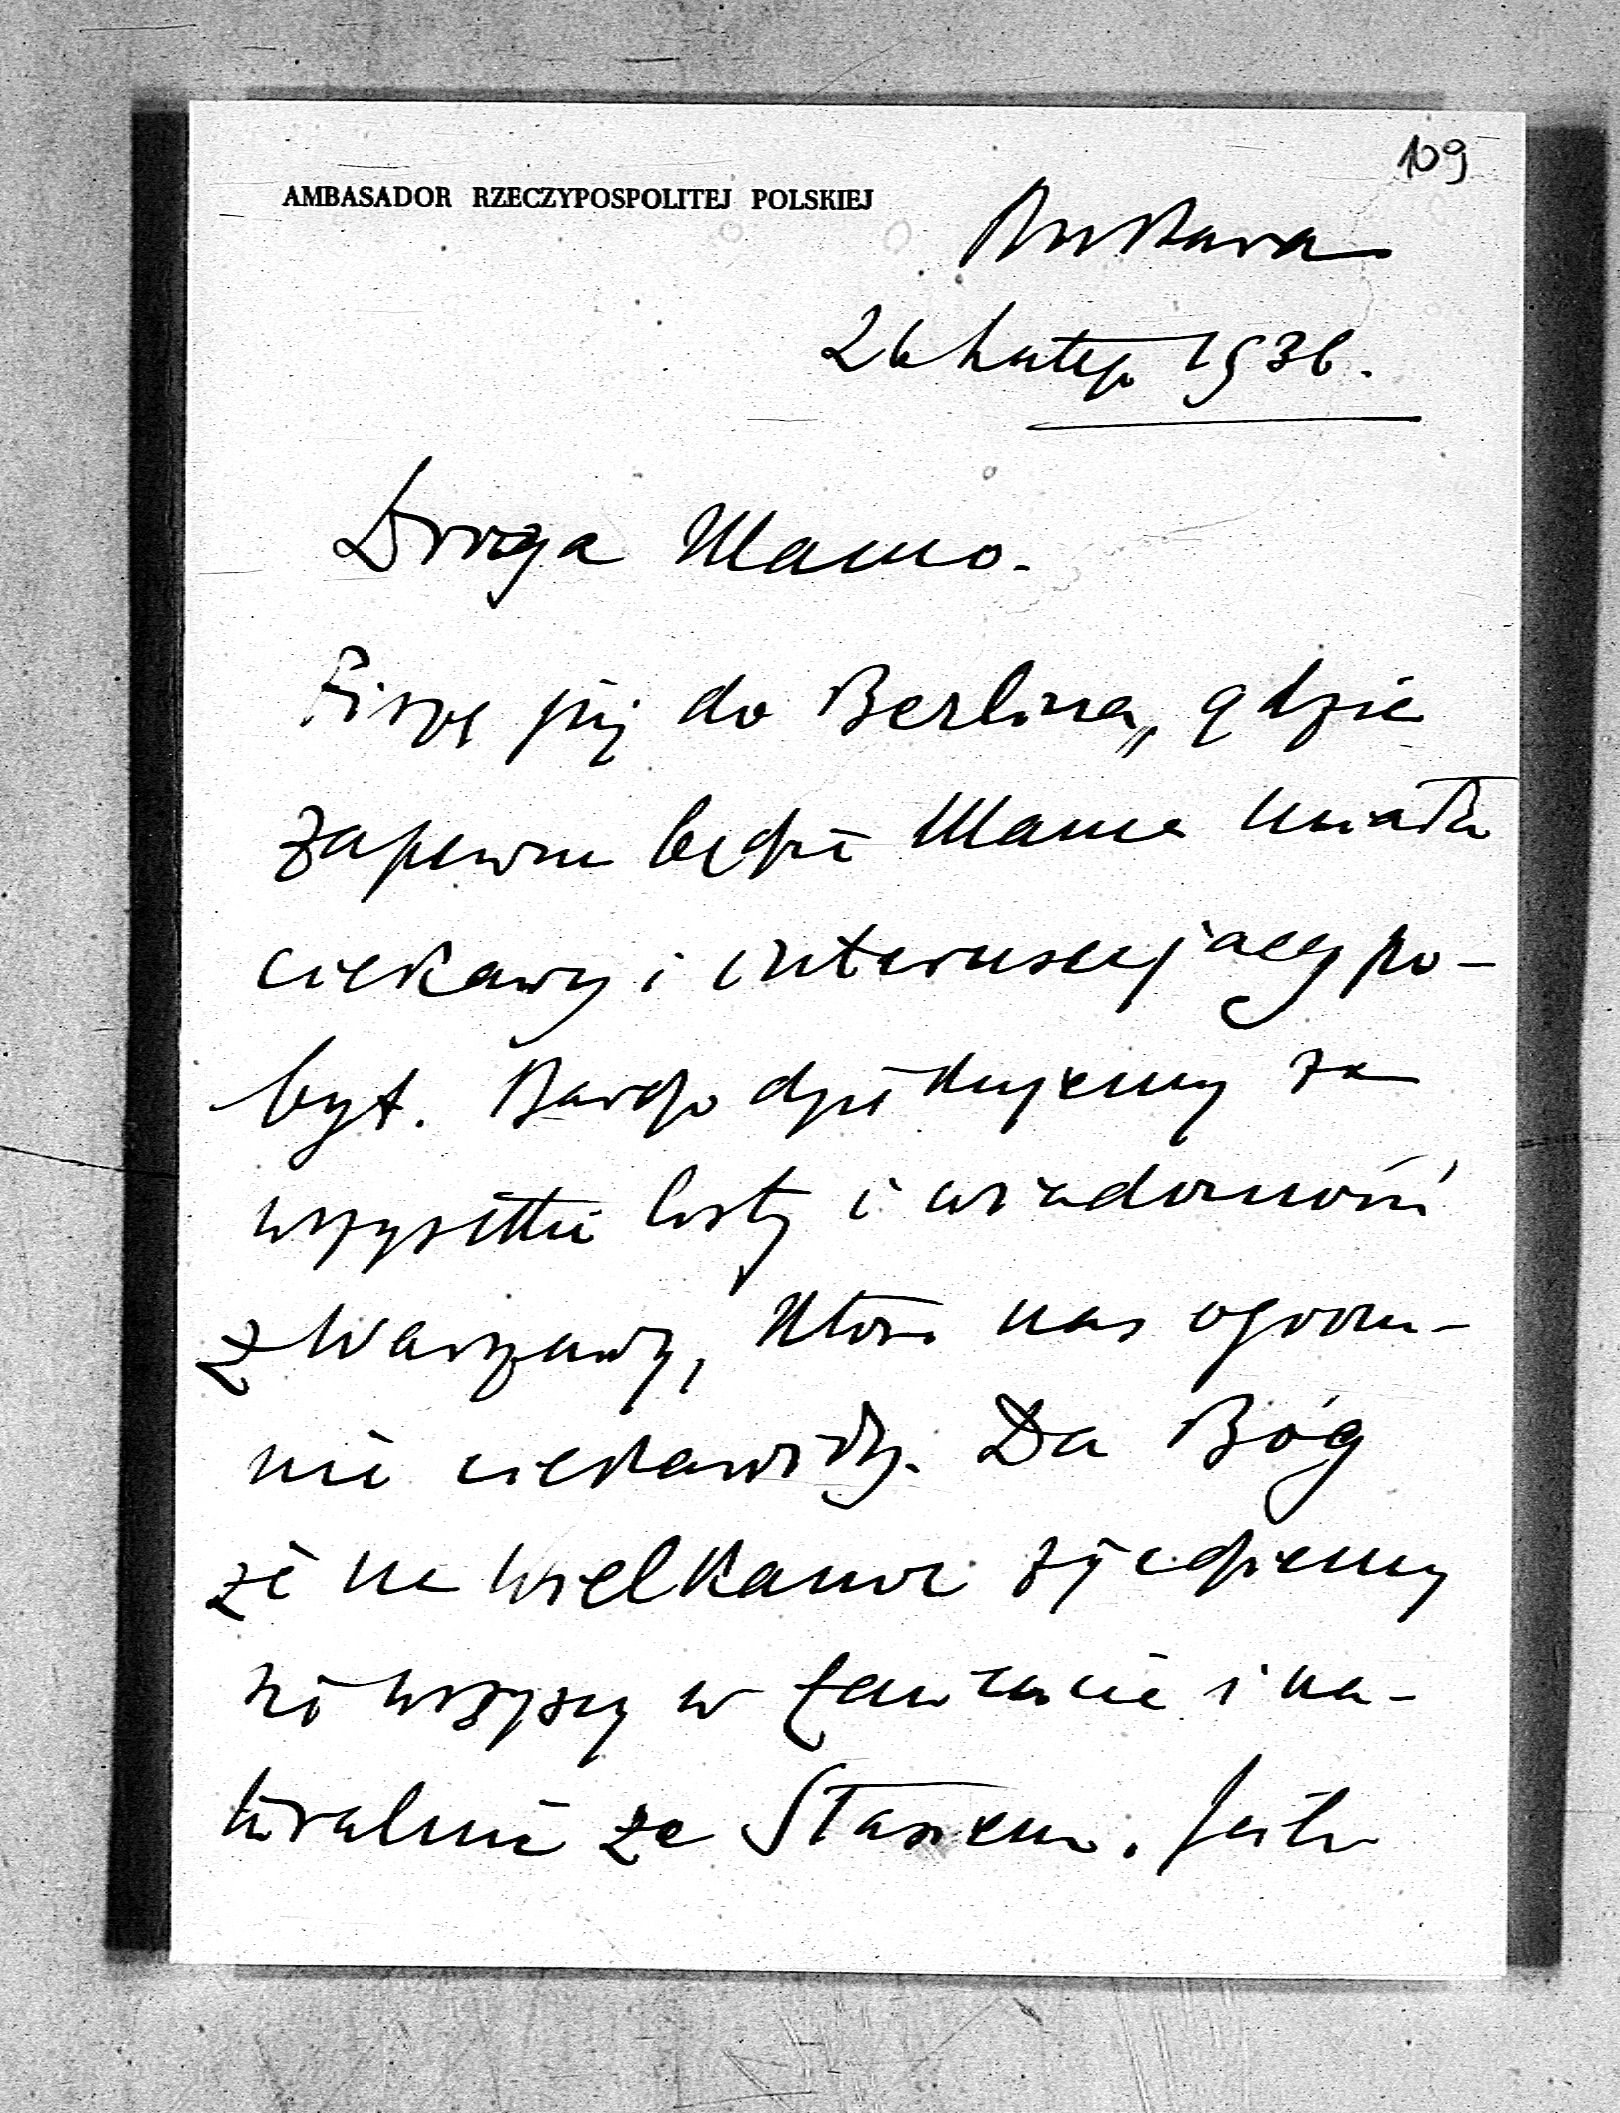 109
AMBASADOR RZECZYPOSPOLITEJ POLSKIEJ
26 Lutego 1936.
Droga Mamo.
Piszę już do Berlina, gdzie
zapewne będzie Mama miała
ciekawy i interesujący po-
byt. Bardzo dziękujemy za
wszystkie listy i wiadomości
z Warszawy, które nas ogrom-
nie ciekawiły. Da Bóg
że na Wielkanoc zjedziemy
się wszyscy w Łańcucie i na-
turalnie ze Stasiem. Jest